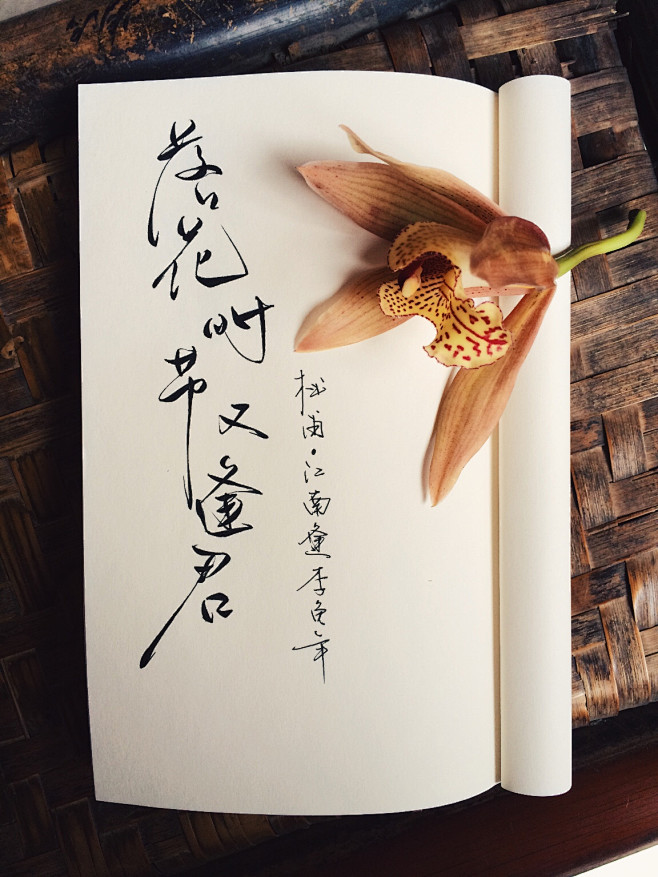 杜甫·江南逢李龟年
落花时节又逢君